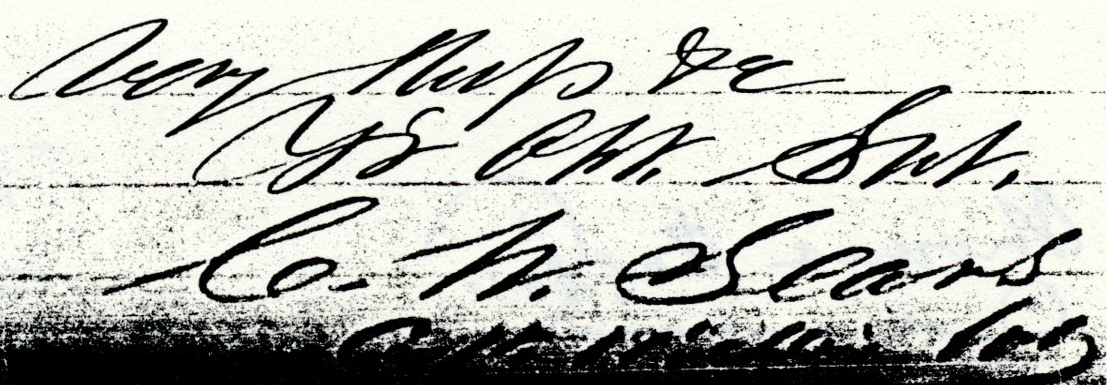 Very Resp &c
Yr Obt. Svt.
C. W. Sears